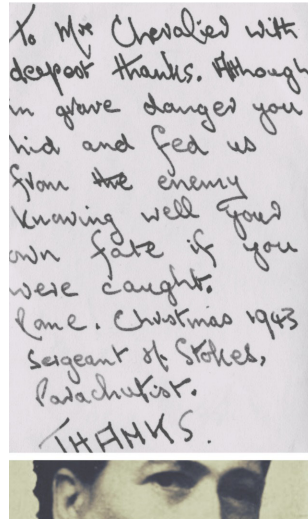 To Mrs Chevalier with
deepest thanks. Although
in grave danger you
hid and fed us
from the enemy
knowing well your
own fate if you
were caught.
Rome. Christmas 1943
Sergeant M. Stokes,
Parachutist.
THANKS.